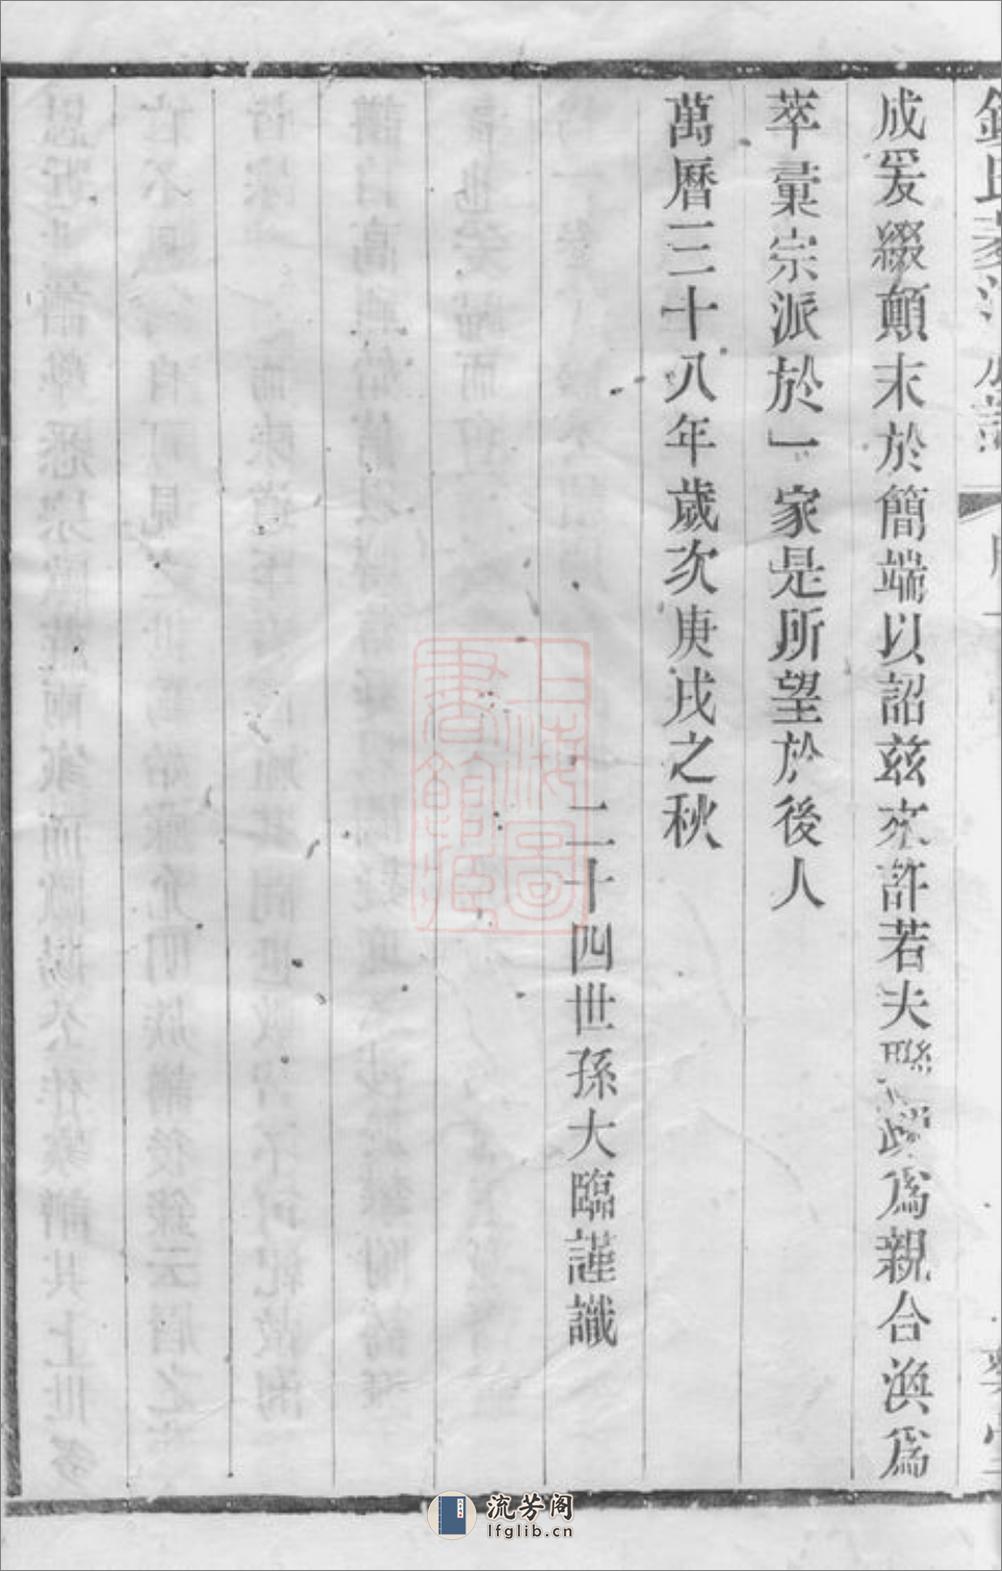 成爰綴顛末於簡端以詔兹來許若夫聯疎爲親合渙爲
萃彙宗派於一家是所望於後人
萬曆三十八年歲次庚戌之秋
二十四世孫大臨謹識
上海圖書館藏
流芳阁
lfglib.cn